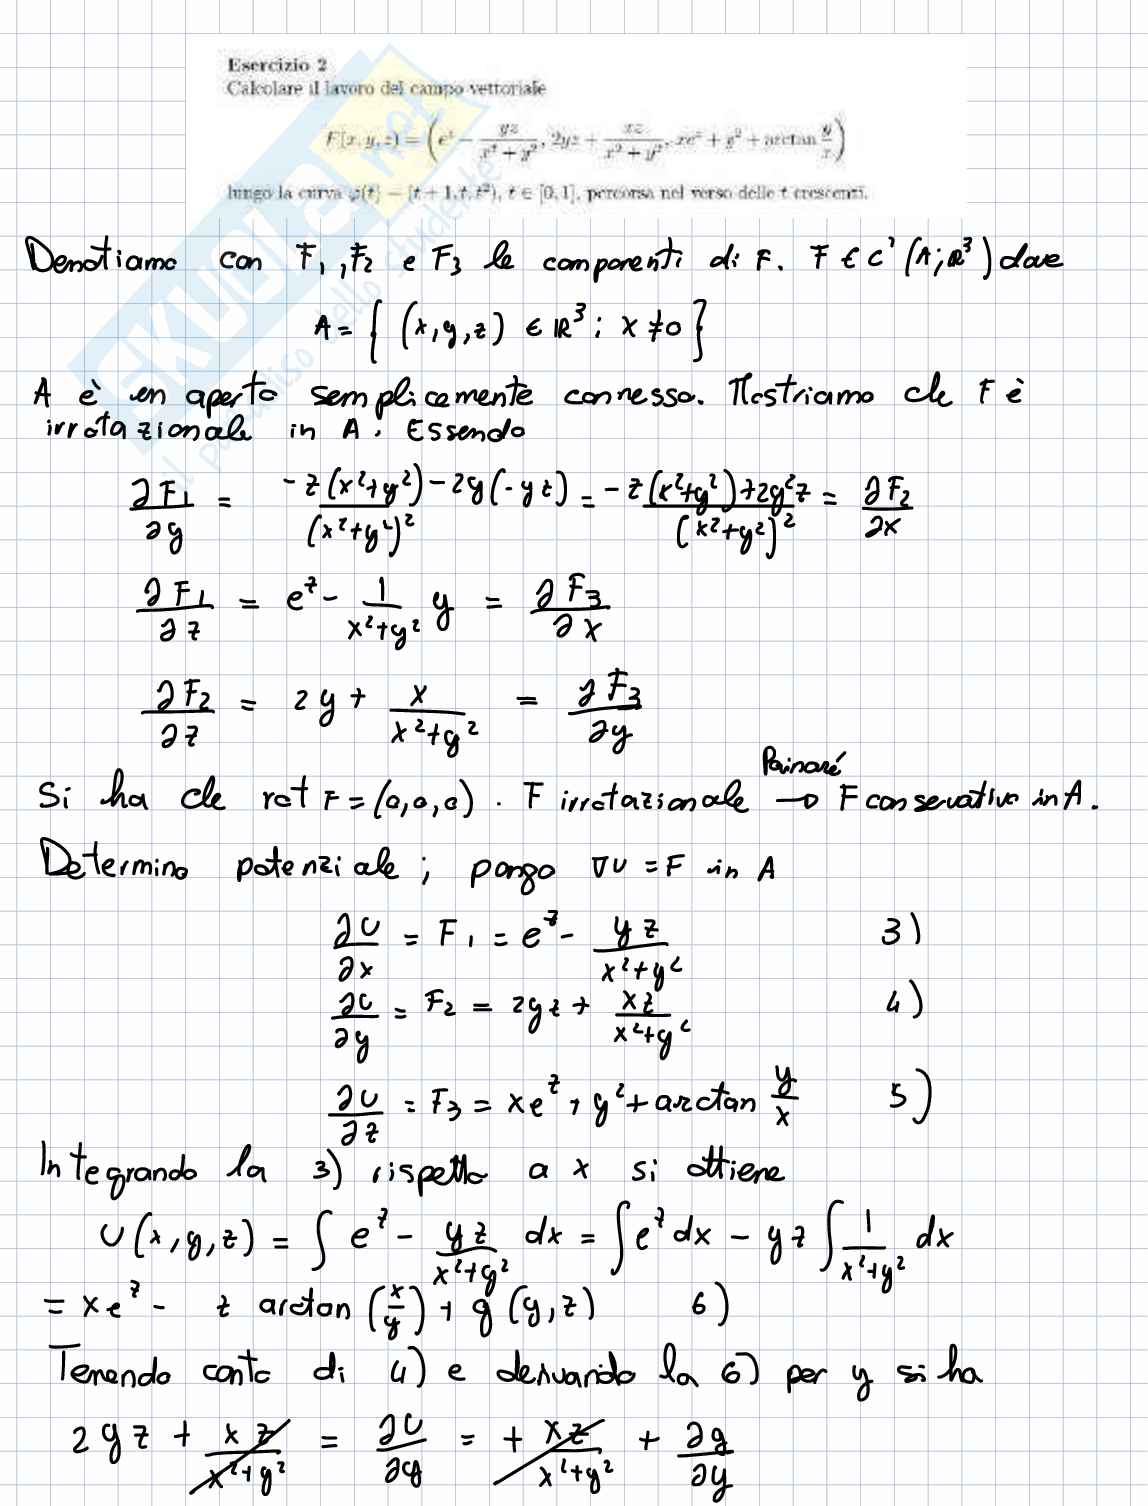 Esercizio 2
Calcolare il lavoro del campo vettoriale
F(x, y, z) = (e^z − yz/(x² + y²), 2yz + xz/(x² + y²), xe^z + y² + arctan y/x)
lungo la curva φ(t) = (t + 1, t, t²), t ∈ [0, 1], percorsa nel verso delle t crescenti.
Denotiamo con F₁, F₂ e F₃ le componenti di F. F ∈ C¹(A; ℝ³) dove
A = { (x, y, z) ∈ ℝ³ : x ≠ 0 }
A è un aperto semplicemente connesso. Mostriamo che F è
irrotazionale in A. Essendo
∂F₁/∂y = (-z(x²+y²) - 2y(-yz))/(x²+y²)² = (-z(x²+y²) + 2y²z)/(x²+y²)² = ∂F₂/∂x
∂F₁/∂z = e^z - 1/(x²+y²) y = ∂F₃/∂x
∂F₂/∂z = 2y + x/(x²+y²) = ∂F₃/∂y
Poincaré
Si ha che rot F = (0,0,0). F irrotazionale → F conservativo in A.
Determino potenziale; pongo ∇U = F in A
∂U/∂x = F₁ = e^z - yz/(x²+y²) 3)
∂U/∂y = F₂ = 2yz + xz/(x²+y²) 4)
∂U/∂z = F₃ = xe^z + y² + arctan y/x 5)
Integrando la 3) rispetto a x si ottiene
U(x,y,z) = ∫ e^z - yz/(x²+y²) dx = ∫ e^z dx - yz ∫ 1/(x²+y²) dx
= xe^z - z arctan (x/y) + g(y,z) 6)
Tenendo conto di 4) e derivando la 6) per y si ha
2yz + xz/(x²+y²) = ∂U/∂y = + xz/(x²+y²) + ∂g/∂y
SKUOLA.net
il paradiso dello studente